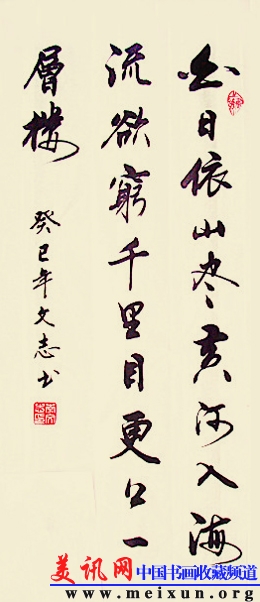 白日依山尽黄河入海
流欲窮千里目更上一
層樓
癸巳年文志书
美讯网 中国书画收藏频道
www.meixun.org